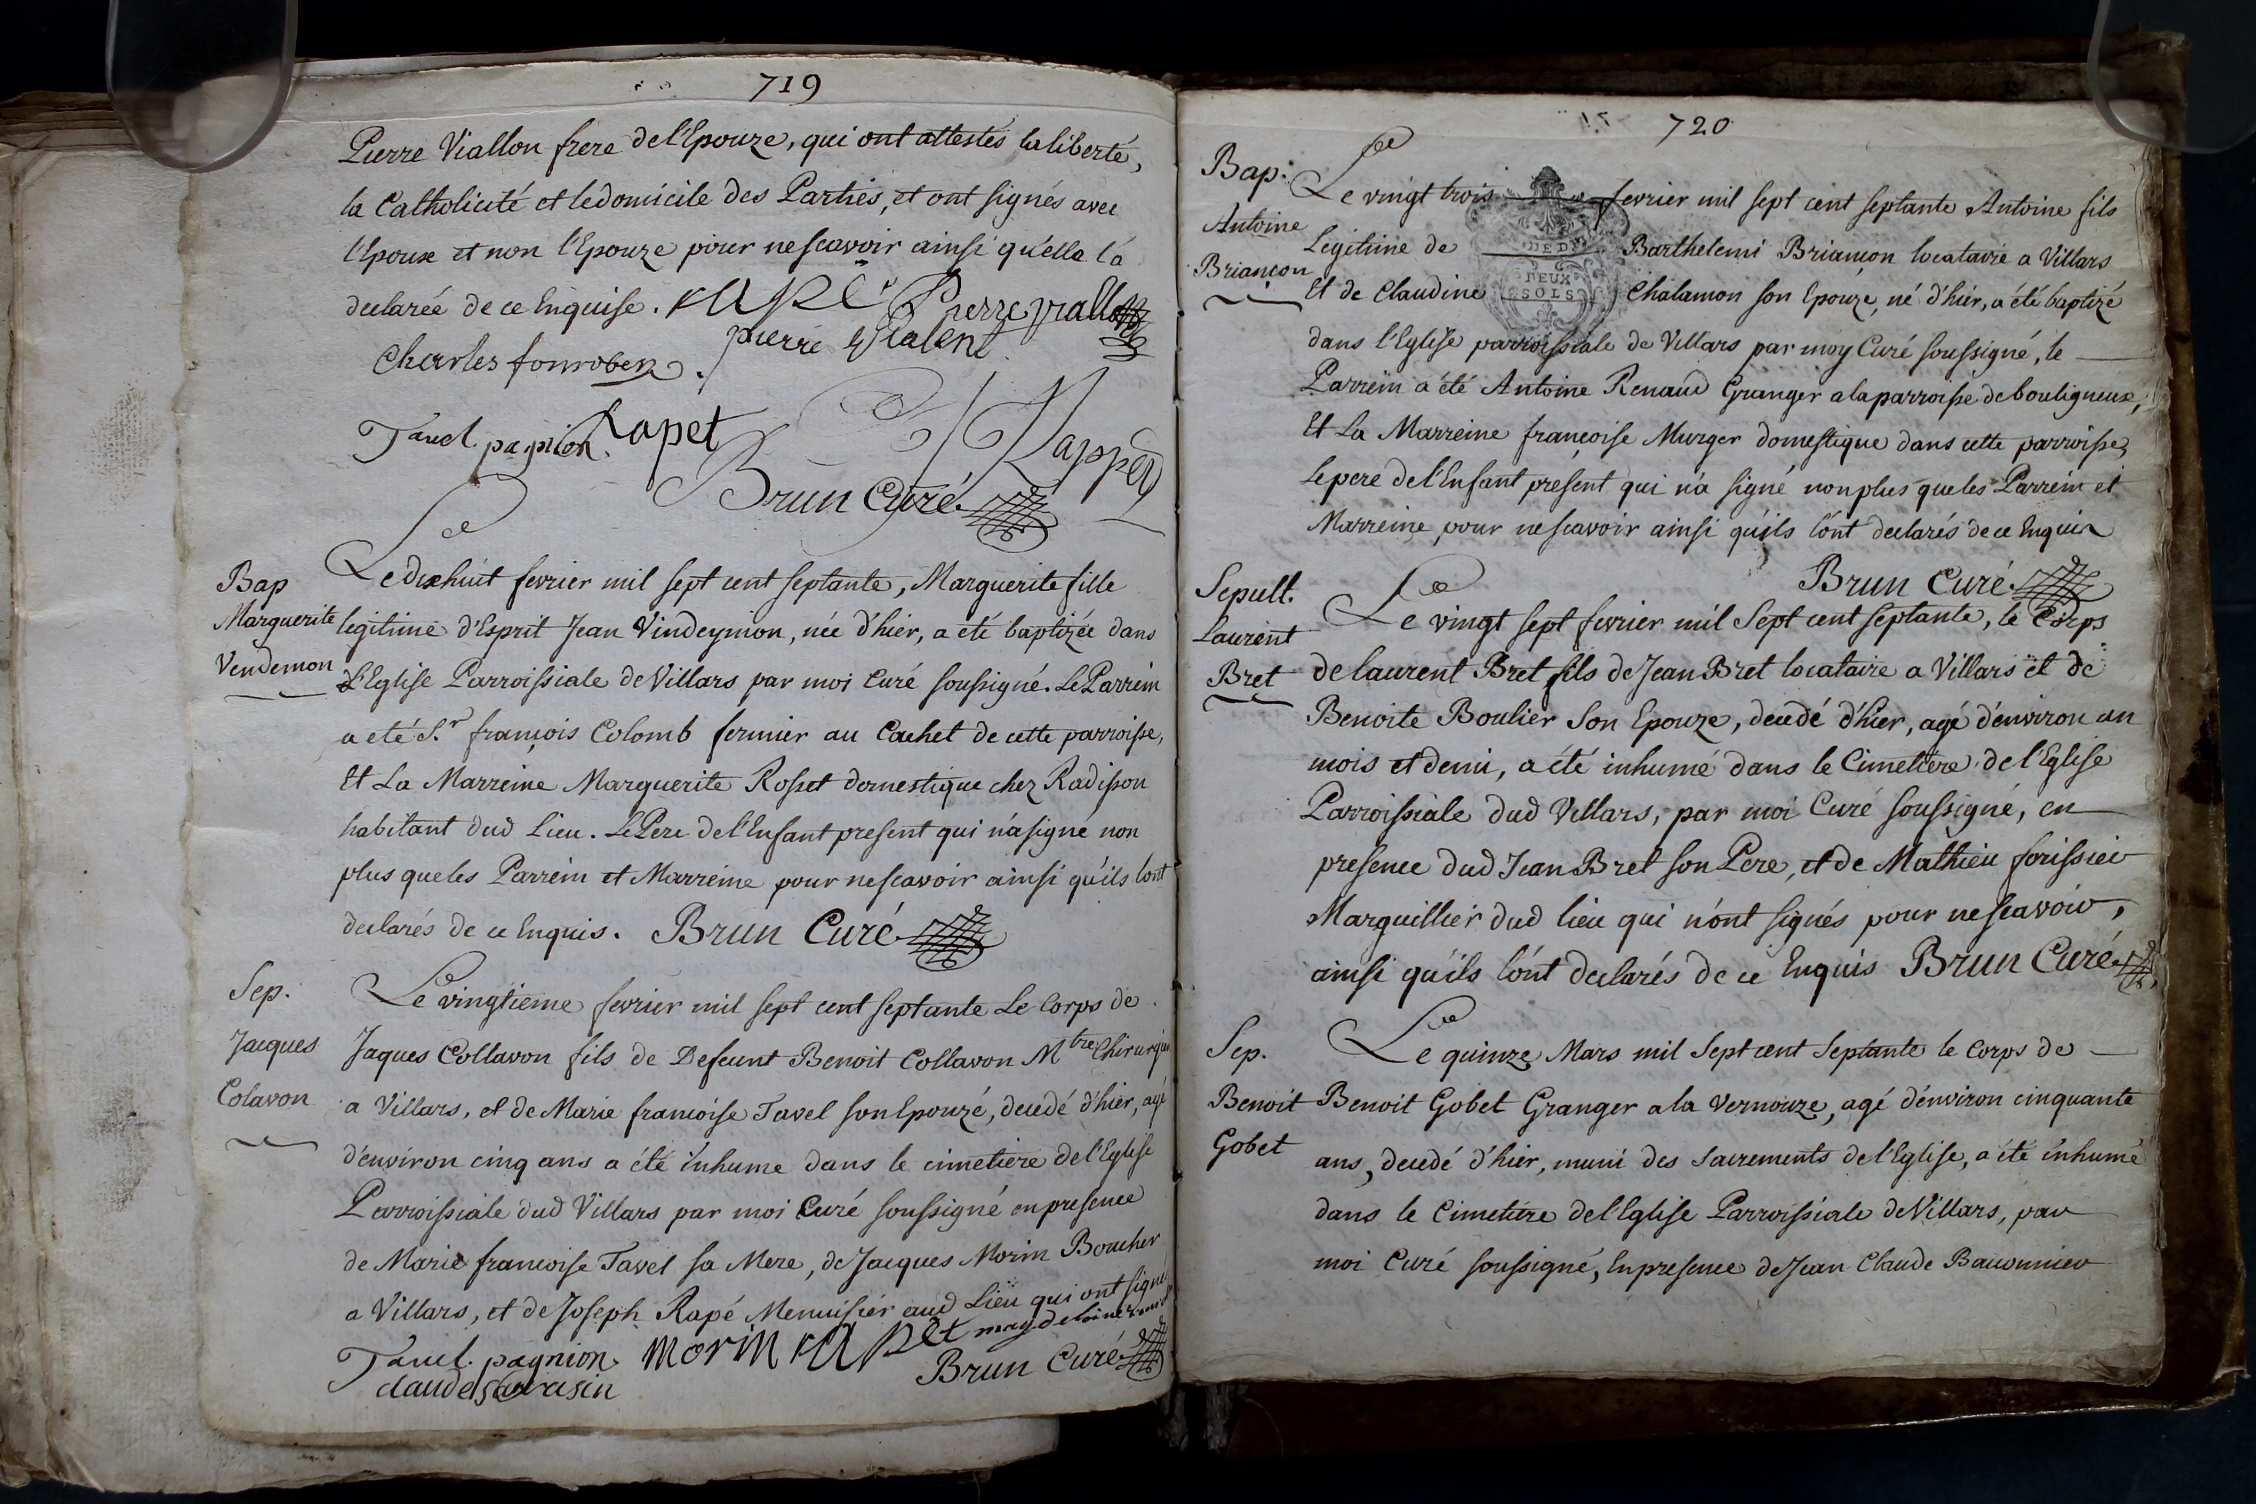 719
Pierre Viallon frere de l'Epouze, qui ont attestés la liberté,
la Catholicité et le domicile des Parties, et ont signés avec
l'Epoux et non l'Epouze pour ne scavoir ainsi qu'elle l'a
declarée de ce Enquise. rapet Pierre viallon
pierre
Charles fonroben
Tavel pagnion. Rapet Rappet
Brun Curé
Bap
Marguerite
Vendemon
Le dixhuit fevrier mil sept cent septante, Marguerite fille
legitime d'Esprit Jean Vindeymon, née d'hier, a eté baptizée dans
l'Eglise Parroissiale de Villars par moi Curé soussigné. Le Parrein
a eté S.r françois Colomb fermier au Cachet de cette parroisse,
Et La Marreine Marguerite Rosset domestique chez Radisson
habitant dud Lieu. Le Pere de l'Enfant present qui n'a signé non
plus que les Parrein et Marreine pour ne scavoir ainsi qu'ils l'ont
declarés de ce Enquis. Brun Curé
Sep.
Jacques
Colavon
Le vingtieme fevrier mil sept cent septante Le Corps de
Jaques Collavon fils de Defeunt Benoit Collavon M.tre Chirurgien
a Villars, et de Marie francoise Tavel son Epouzé, decedé d'hier, agé
d'environ cinq ans a été inhume dans le cimetiere de l'Eglise
Parroissiale dud Villars par moi Curé soussigné en presence
de Marie francoise Tavel sa Mere, de Jacques Morin Boucher
a Villars, et de Joseph Rapé Menuisier aud Lieu qui ont signé
Tavel. pagnion morin rapet magdeloine
claude sarrasin Brun Curé
720
Bap:
Antoine
Briançon
Le vingt trois fevrier mil sept cent septante Antoine fils
Legitime de Barthelemi Briançon locataire a Villars
Et de Claudine Chalamon son Epouze, né d'hier, a été baptizé
DEUX
SOLS
dans l'Eglise parroissiale de Villars par moy Curé soussigné, le
Parrein a été Antoine Renaud Granger a la parroisse de bouligneux,
Et La Marreine françoise Murger domestique dans cette parroisse,
le pere de l'Enfant present qui n'a signé non plus que les Parrein et
Marreine pour ne scavoir ainsi qu'ils l'ont declarés de ce Enquis
Brun Curé
Sepult.
Laurent
Bret
Le vingt sept fevrier mil Sept cent septante, le Corps
de laurent Bret fils de Jean Bret locataire a Villars et de
Benoite Boulier Son Epouze, decedé d'hier, agé d'environ un
mois et demi, a été inhumé dans le Cimetiere de l'Eglise
Parroissiale dud Villars, par moi Curé soussigné, en
presence dud Jean Bret son Pere, et de Mathieu forissier
Marguillier dud lieu qui n'ont signés pour ne scavoir,
ainsi qu'ils l'ont declarés de ce Enquis Brun Curé
Sep.
Benoit
Gobet
Le quinze Mars mil Sept cent Septante le Corps de
Benoit Gobet Granger a la Vernouze, agé d'environ cinquante
ans, decedé d'hier, muni des Sacrements de l'Eglise, a été inhumé
dans le Cimetiere de l'Eglise Parroissiale de Villars, par
moi Curé soussigné, En presence de Jean Claude Bauonnier